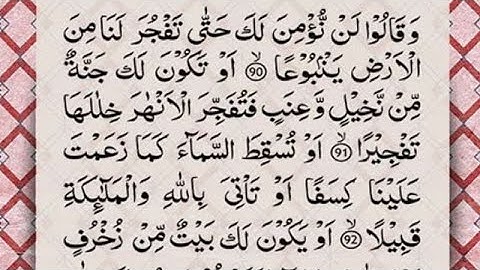 وَقَالُوْا لَنْ نُّؤْمِنَ لَكَ حَتّٰى تَفْجُرَ لَنَا مِنَ
الْاَرْضِ يَنْۢبُوْعًا ۙ﴿90﴾ اَوْ تَكُوْنَ لَكَ جَنَّةٌ
مِّنْ نَّخِيْلٍ وَّعِنَبٍ فَتُفَجِّرَ الْاَنْهٰرَ خِلٰلَهَا
تَفْجِيْرًا ۙ﴿91﴾ اَوْ تُسْقِطَ السَّمَآءَ كَمَا زَعَمْتَ
عَلَيْنَا كِسَفًا اَوْ تَاْتِىَ بِاللّٰهِ وَالْمَلٰٓئِكَةِ
قَبِيْلًا ۙ﴿92﴾ اَوْ يَكُوْنَ لَكَ بَيْتٌ مِّنْ زُخْرُفٍ